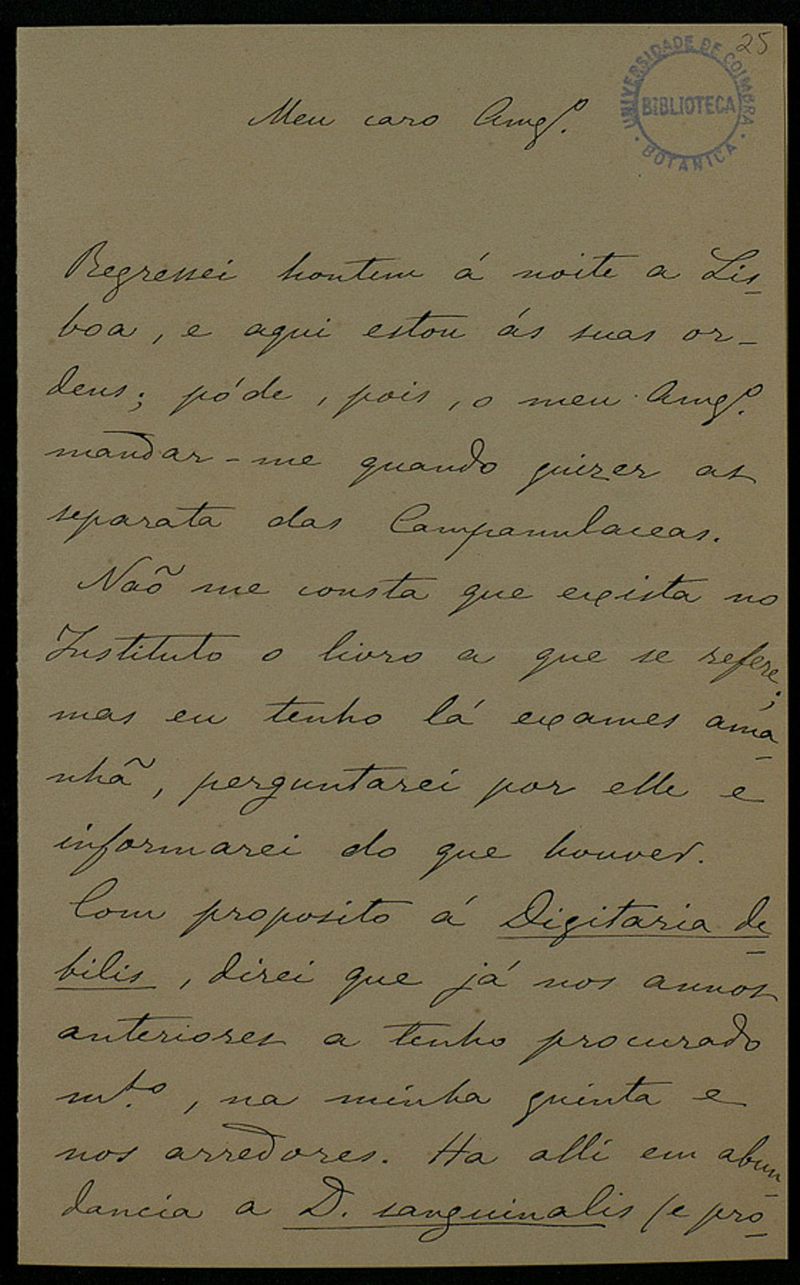 25
UNIVERSIDADE DE COIMBRA
BIBLIOTECA
BOTANICA
Meu caro Amg.º
Regressei hontem á noite a Lis-
boa, e aqui estou ás suas or-
dens; póde, pois, o meu Amg.º
mandar-me quando quizer as
separata das Campanulaceas.
Não me consta que exista no
Instituto o livro a que se refere;
mas eu tenho lá exames ama-
nhã, perguntarei por elle e
informarei do que houver.
Com proposito á Digitaria de-
bilis, direi que já nos annos
anteriores a tenho procurado
mt.º, na minha quinta e
nos arredores. Ha alli em abun-
dancia a D. sanguinalis (e pro-